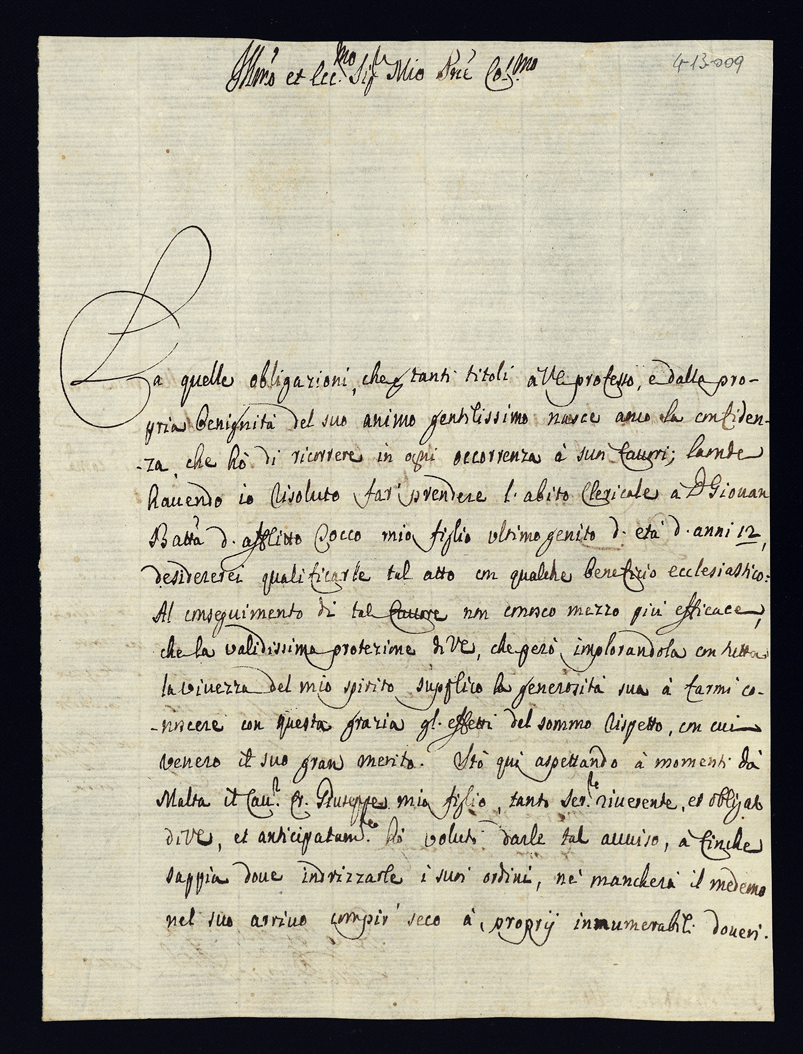 Illmo et Ecc.mo Sigr Mio Pne Colmo
4-13-009
Da quelle obligazioni, che p tanti titoli à VE professo, e dalla pro-
pria benignità del suo animo gentilissimo nasce anco la confiden-
-za, che hò di ricorrere in ogni occorrenza à suoi favori; laonde
havendo io risoluto far prendere l'abito Clericale à D Giovan
Batta d'afflitto Cocco mio figlio ultimo genito d'età d'anni 12,
desidererei qualificarle tal atto con qualche beneficio ecclesiastico:
Al conseguimento di tal favore non conosco mezzo più efficace,
che la validissima protezione di VE, che però implorandola con tutta
la vivezza del mio spirito supplico la generosità sua à farmi co-
-noscere con questa grazia gl'effetti del sommo rispetto, con cui
venero il suo gran merito. Stò quì aspettando à momenti dà
Malta il Cav.r Fr. Giuseppe mio figlio, tanto Ser.re riverente, et obligat
di VE, et anticipatam.te hò voluto darle tal avviso, à finche
sappia dove indrizzarle i suoi ordini, nè mancherà il medemo
nel suo arrivo compir seco à proprij innumerabili doveri.